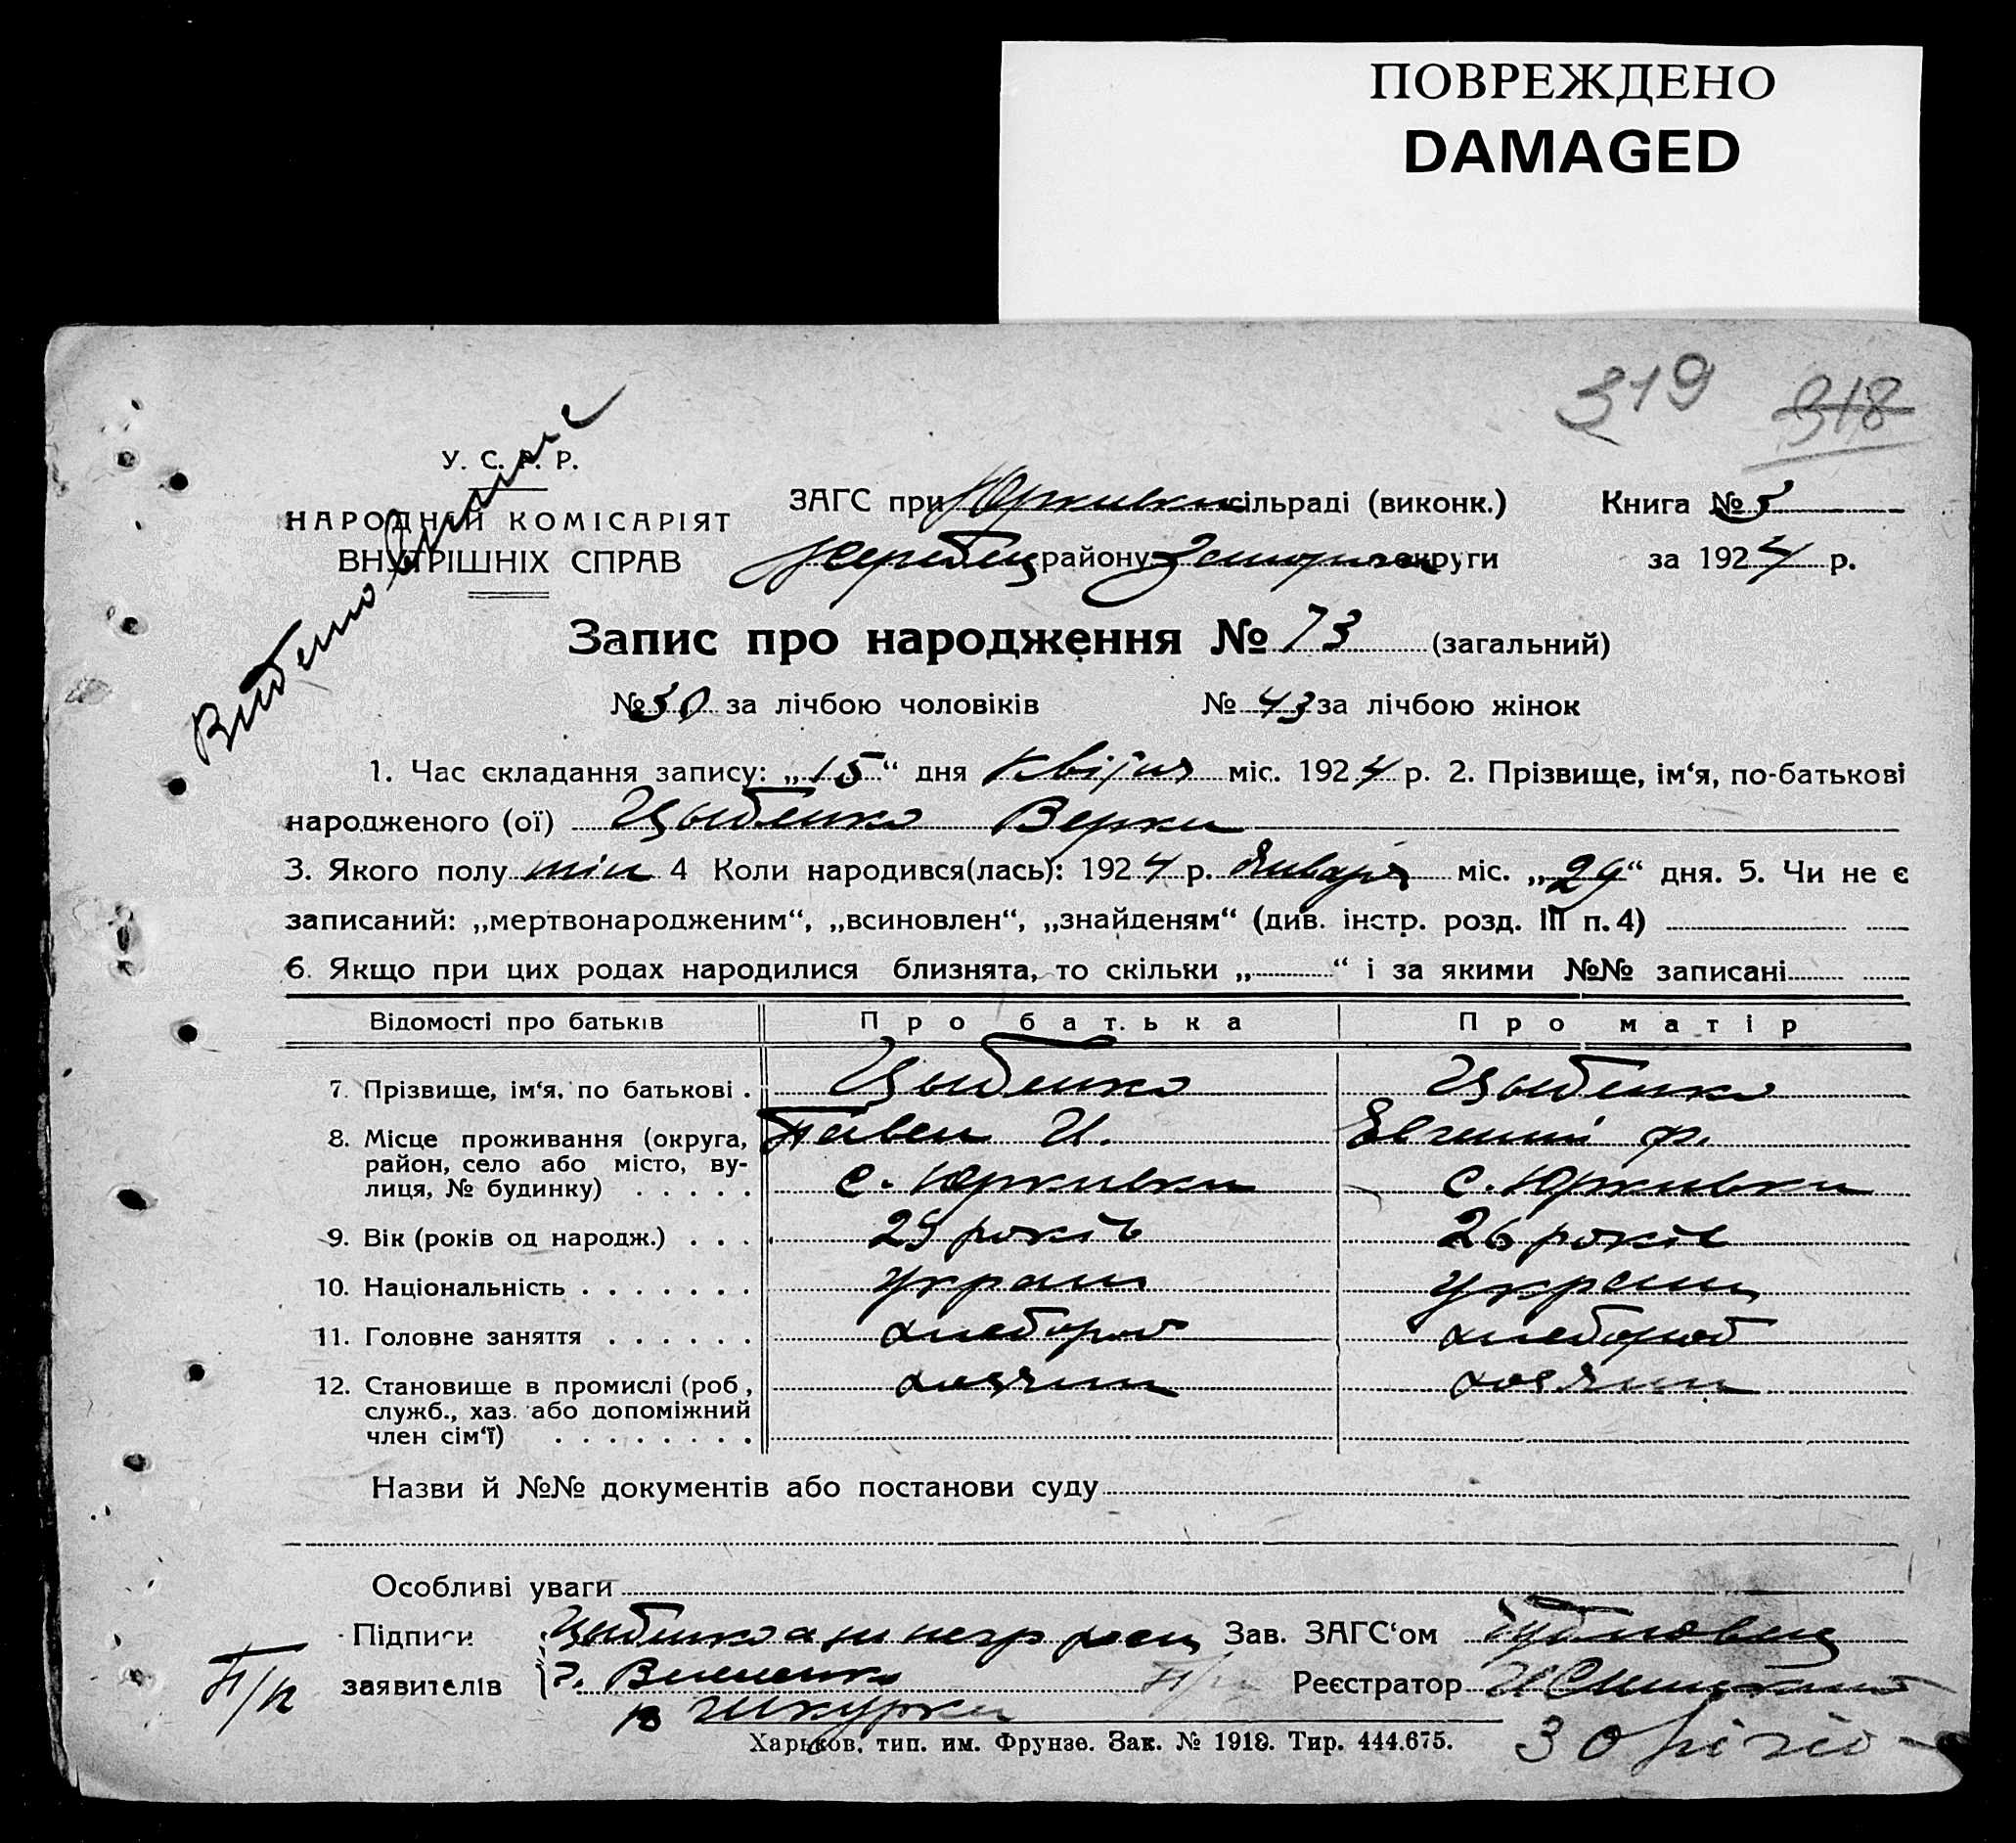 ПОВРЕЖДЕНО
DAMAGED
319 318
У. С. Р. Р.
НАРОДНІЙ КОМІСАРІЯТ
ВНУТРІШНІХ СПРАВ
ЗАГС при Юрківки сільраді (виконк.) Книга № 5
району округи за 1924 р.
Запис про народження № 73 (загальний)
№ 30 за лічбою чоловіків № 43 за лічбою жінок
1. Час складання запису: „15“ дня квітня міс. 1924 р. 2. Прізвище, ім‘я, по-батькові
народженого (ої) Цыбенко Верки
3. Якого полу жін 4 Коли народився(лась): 1924 р. Января міс. „29“ дня. 5. Чи не є
записаний: „мертвонародженим“, „всиновлен“, „знайденям“ (див. інстр. розд. III п. 4)
6. Якщо при цих родах народилися близнята, то скільки „ “ і за якими №№ записані
Відомості про батьків Про батька Про матір
7. Прізвище, ім‘я, по батькові . Цыбенко Цыбенко
8. Місце проживання (округа, Павел И. Евгения Ф.
район, село або місто, ву-
лиця, № будинку) . . . . . с. Юрківка с. Юрківка
9. Вік (років од народж.) . . . 29 років 26 років
10. Національність . . . . . . . украин украин
11. Головне заняття . . . . . . хлебороб хлебороб
12. Становище в промислі (роб., хозяин хозяин
служб., хаз. або допоміжний
член сім‘ї) . . . . . . . .
Назви й №№ документів або постанови суду
Особливі уваги
Підписи Цыбенко а за негр росп Зав. ЗАГС‘ом
П/п заявителів Реєстратор
Шкурка
Харьков, тип. им. Фрунзе. Зак. № 1918. Тир. 444.675.